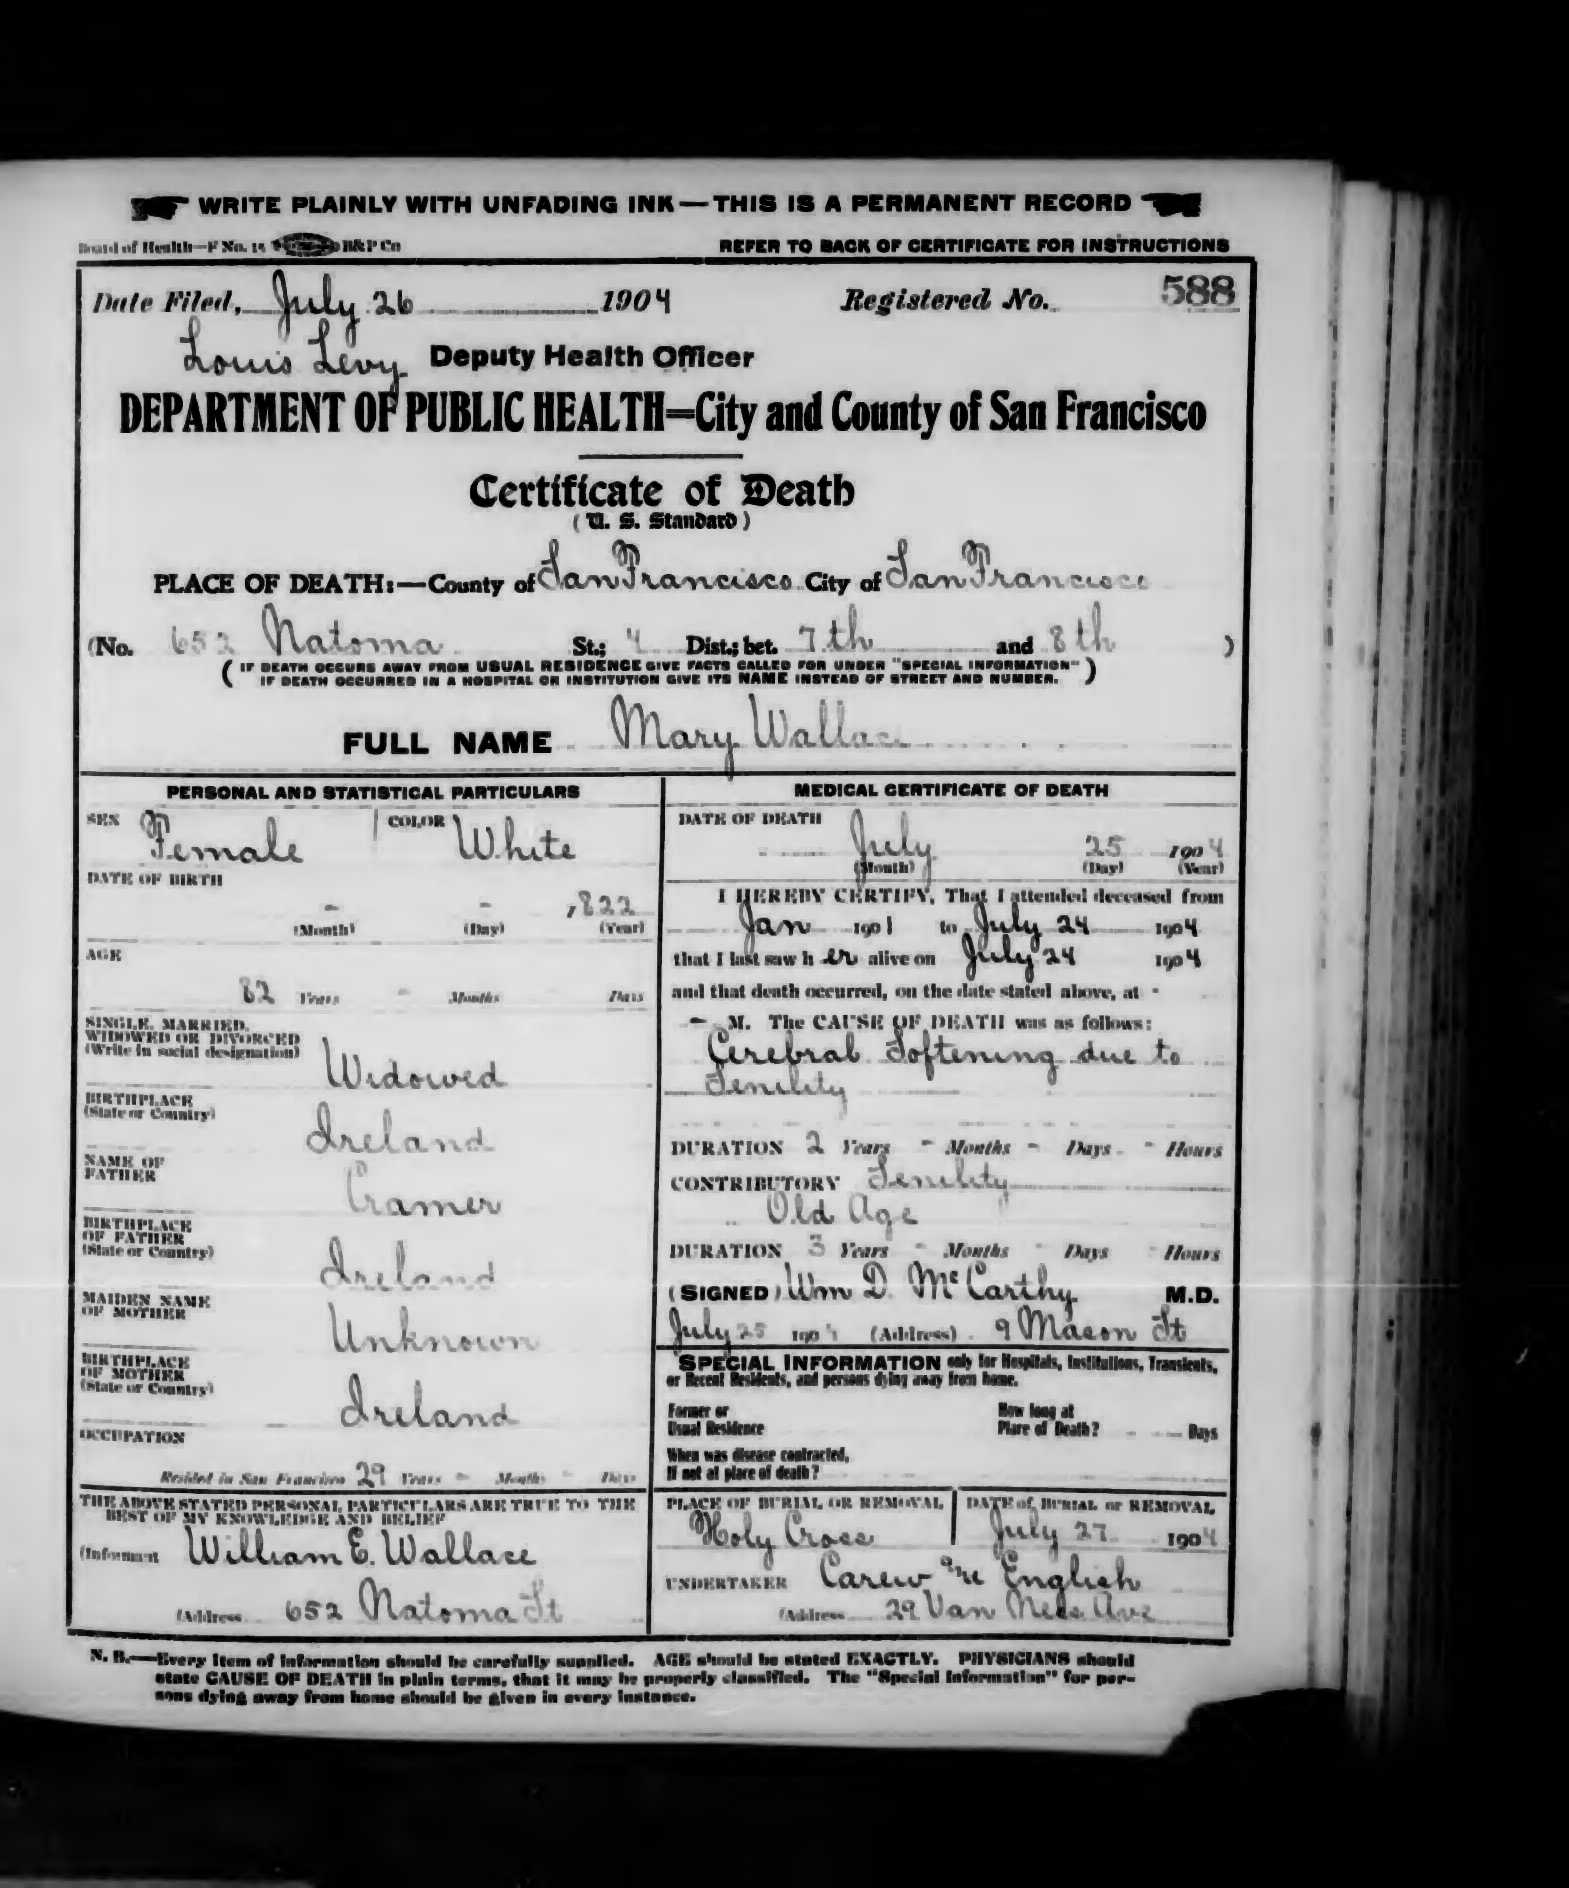 WRITE PLAINLY WITH UNFADING INK—THIS IS A PERMANENT RECORD
Board of Health—F No. 15 B&P Co
REFER TO BACK OF CERTIFICATE FOR INSTRUCTIONS
Date Filed, July 26 1904 Registered No. 588
Louis Levy Deputy Health Officer
DEPARTMENT OF PUBLIC HEALTH=City and County of San Francisco
Certificate of Death
(U. S. Standard)
PLACE OF DEATH:—County of San Francisco City of San Francisco
(No. 652 Natoma St.; 4 Dist.; bet. 7th and 8th )
( IF DEATH OCCURS AWAY FROM USUAL RESIDENCE GIVE FACTS CALLED FOR UNDER "SPECIAL INFORMATION"
IF DEATH OCCURRED IN A HOSPITAL OR INSTITUTION GIVE ITS NAME INSTEAD OF STREET AND NUMBER. )
FULL NAME Mary Wallace
PERSONAL AND STATISTICAL PARTICULARS
SEX Female COLOR White
DATE OF BIRTH
- - 1822
(Month) (Day) (Year)
AGE
82 Years - Months Days
SINGLE, MARRIED,
WIDOWED OR DIVORCED
(Write in social designation)
Widowed
BIRTHPLACE
(State or Country)
Ireland
NAME OF
FATHER
Cramer
BIRTHPLACE
OF FATHER
(State or Country)
Ireland
MAIDEN NAME
OF MOTHER
Unknown
BIRTHPLACE
OF MOTHER
(State or Country)
Ireland
OCCUPATION
Resided in San Francisco 29 Years - Months - Days
THE ABOVE STATED PERSONAL PARTICULARS ARE TRUE TO THE
BEST OF MY KNOWLEDGE AND BELIEF
(Informant William E. Wallace
(Address 652 Natoma St
MEDICAL CERTIFICATE OF DEATH
DATE OF DEATH
July 25 1904
(Month) (Day) (Year)
I HEREBY CERTIFY, That I attended deceased from
Jan 1901 to July 24 1904
that I last saw h er alive on July 24 1904
and that death occurred, on the date stated above, at -
- M. The CAUSE OF DEATH was as follows:
Cerebral Softening due to
Senility
DURATION 2 Years - Months - Days - Hours
CONTRIBUTORY Senility
Old Age
DURATION 3 Years - Months - Days - Hours
(SIGNED) Wm D. McCarthy M.D.
July 25 1904 (Address) 9 Mason St
SPECIAL INFORMATION only for Hospitals, Institutions, Transients,
or Recent Residents, and persons dying away from home.
Former or
Usual Residence
How long at
Place of Death? Days
When was disease contracted,
If not at place of death?
PLACE OF BURIAL OR REMOVAL
Holy Cross
DATE of BURIAL or REMOVAL
July 27 1904
UNDERTAKER Carew and English
(Address 29 Van Ness Ave
N. B.—Every item of information should be carefully supplied. AGE should be stated EXACTLY. PHYSICIANS should
state CAUSE OF DEATH in plain terms, that it may be properly classified. The "Special Information" for per-
sons dying away from home should be given in every instance.